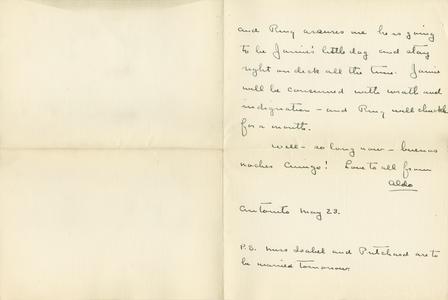 and Ring assures me he is going
to be Jamie's little dog and stay
right on deck all the time. Jamie
will be consumed with wrath and
indignation – and Ring will chuckle
for a month.
Well – so long now – buenas
noches Amigo! Love to all from
Aldo
Antonito May 23.
P.S. Miss Isabel and Pritchard are to
be married tomorrow.